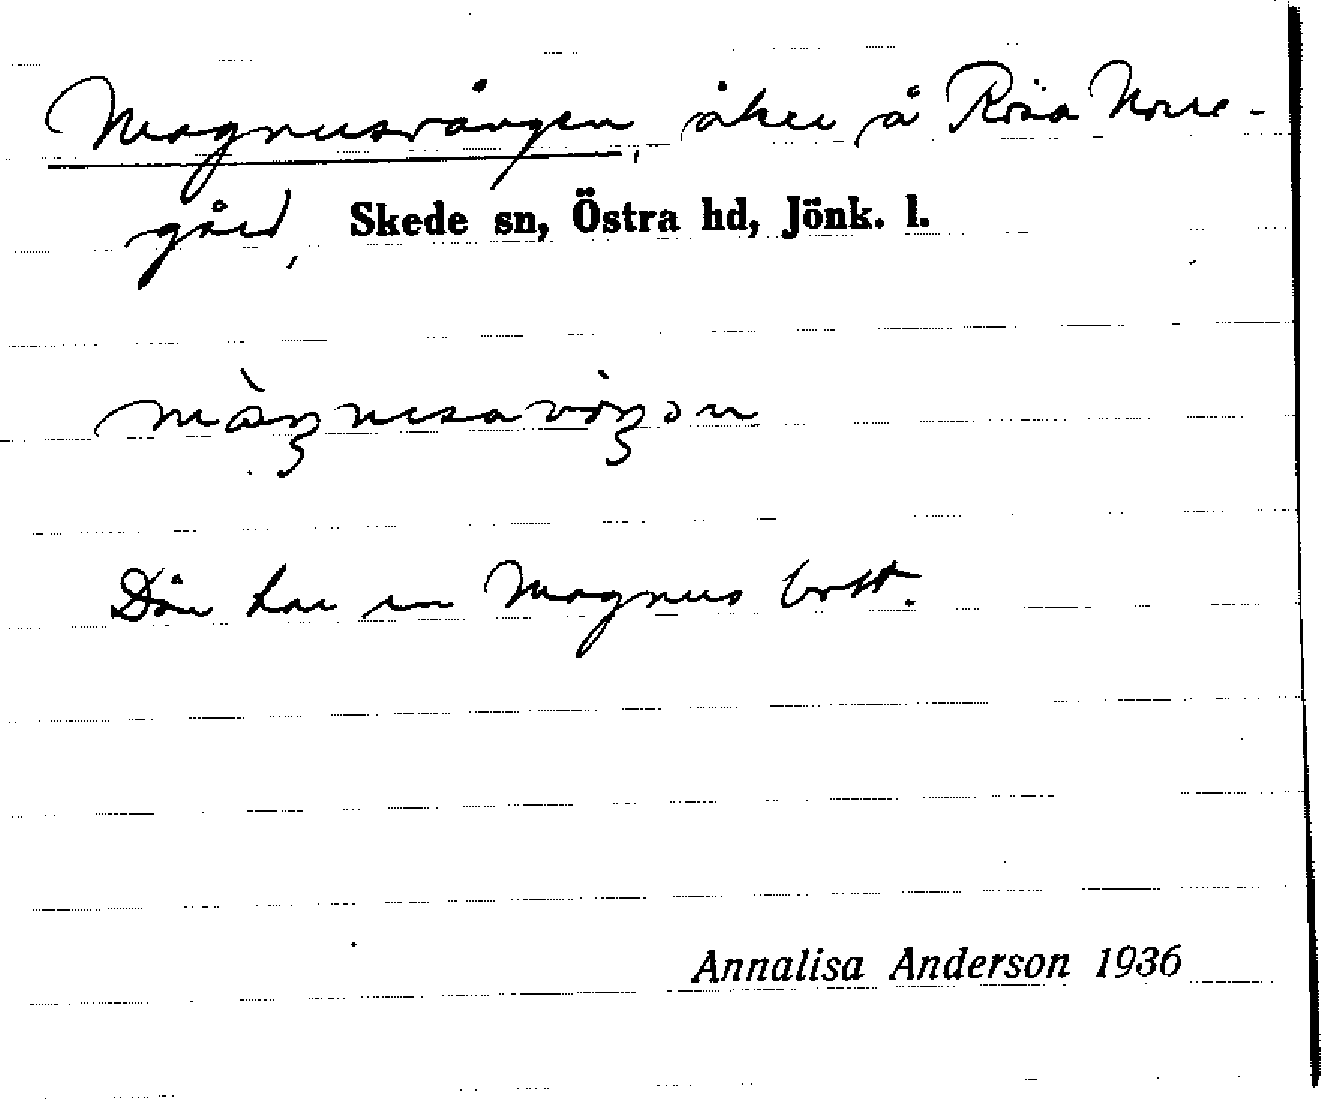 Magnusvången, åker å Rösa Norre-
gård, Skede sn, Östra hd, Jönk. l.
Där har en Magnus bott.
Annalisa Anderson 1936